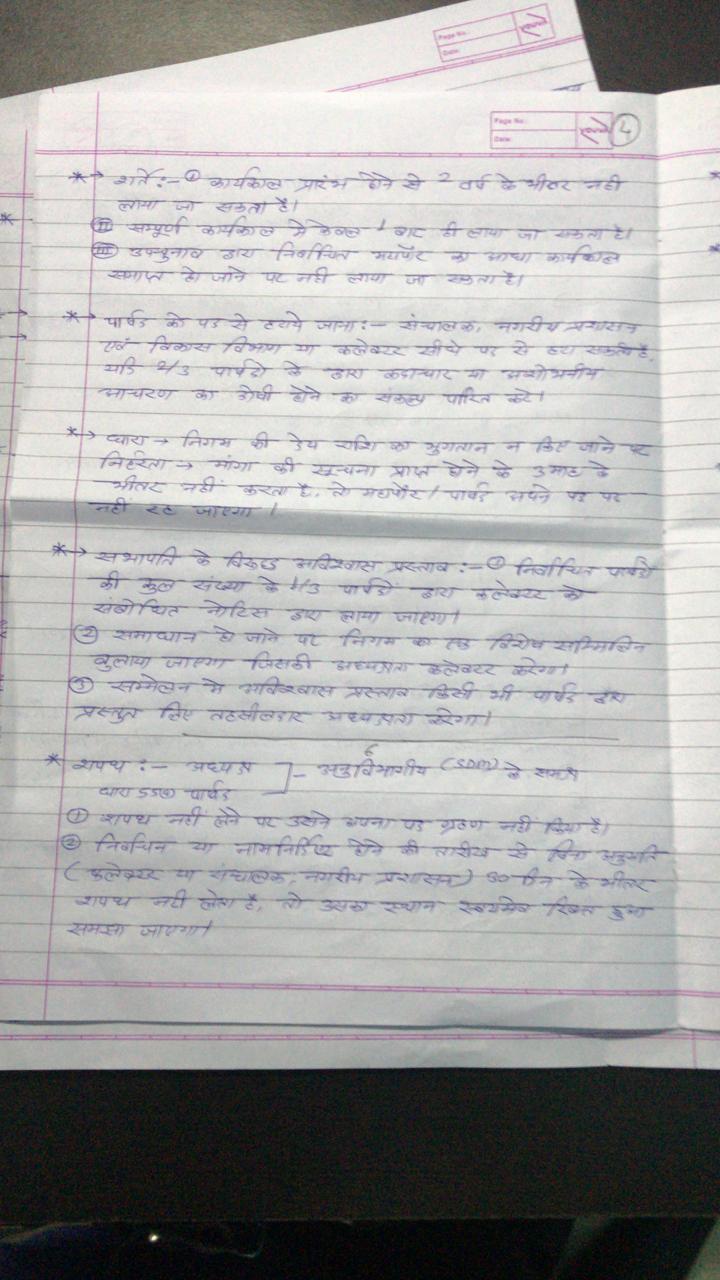 Page No.
Date:
YOUVA
Page No.
Date:
YOUVA
4
*→ शर्ते:- ① कार्यकाल प्रारंभ होने से 2 वर्ष के भीतर नही
लाया जा सकता है।
Ⅱ सम्पूर्ण कार्यकाल मे केवल 1 बार ही लाया जा सकता है।
Ⅲ उपचुनाव द्वारा निर्वाचित महापौर का आधा कार्यकाल
समाप्त हो जाने पर नही लाया जा सकता है।
*→ पार्षद को पद से हटाये जाना:- संचालक, नगरीय प्रशासन
एवं विकास विभाग या कलेक्टर सीधे पद से हटा सकते है,
यदि 2/3 पार्षदो के द्वारा कदाचार या अशोभनीय
आचरण का दोषी होने का संकल्प पारित करे।
*→ धारा → निगम की देय राशि का भुगतान न किए जाने पर
निर्हरता → मांगा की सूचना प्राप्त होने के 3 माह के
भीतर नहीं करता है, तो महापौर / पार्षद अपने पद पर
नहीं रह जाएगा।
*→ सभापति के विरूद्ध अविश्वास प्रस्ताव:- ① निर्वाचित पार्षदो
की कुल संख्या के 1/3 पार्षदों द्वारा कलेक्टर को
संबोधित नोटिस द्वारा लाया जाएगा।
② समाधान हो जाने पर निगम का एक विशेष सम्मिलिन
बुलाया जाएगा जिसकी अध्यक्षता कलेक्टर करेगा।
③ सम्मेलन मे अविश्वास प्रस्ताव किसी भी पार्षद द्वारा
प्रस्तुत लिए तहसीलदार अध्यक्षता करेगा।
* शपथ:- अध्यक्ष ]- अनुविभागीय (SDM) के समक्ष
धारा पार्षद
① शपथ नहीं लेने पर उसने अपना पद ग्रहण नही किया है।
② निर्वाचन या नामनिर्दिष्ट होने की तारीख से बिना अनुमति
(कलेक्टर या संचालक, नगरीय प्रशासन) 30 दिन के भीतर
शपथ नही लेता है, तो उसका स्थान स्वयमेव रिक्त हुआ
समझा जाएगा।